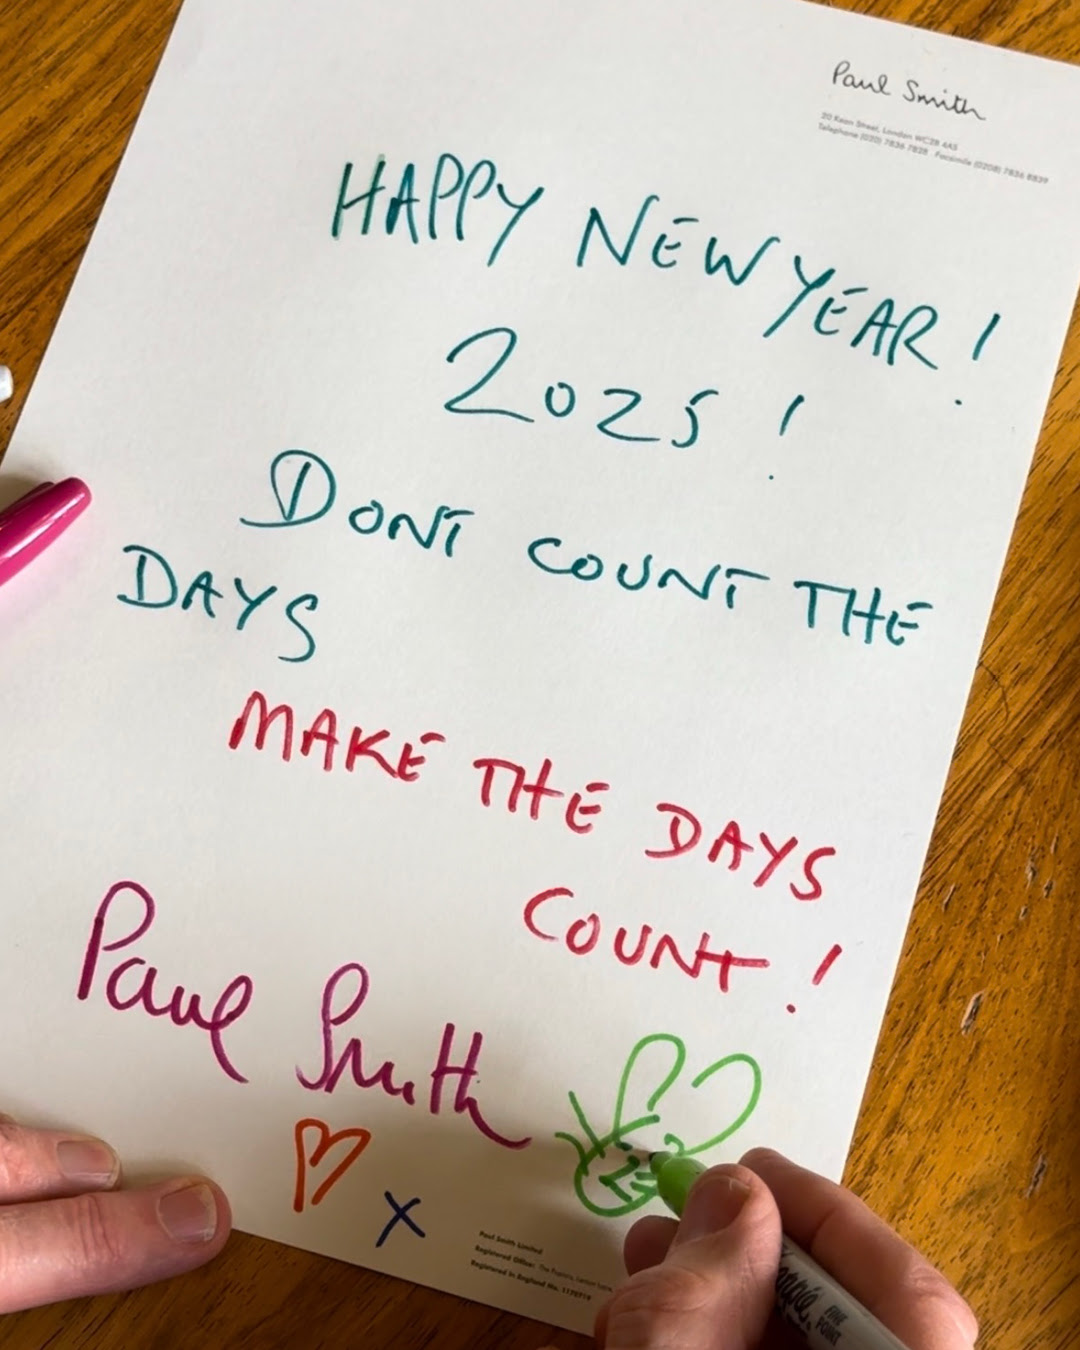 Paul Smith
20 Kean Street, London WC2B 4AS
Telephone (020) 7836 7828 Facsimile (0208) 7836 8839
HAPPY NEW YEAR!
2025!
DONT COUNT THE
DAYS
MAKE THE DAYS
COUNT!
Paul Smith
X
Paul Smith Limited
Registered Office: The Poplars, Lenton Lane,
Registered in England No.
FINE
POINT